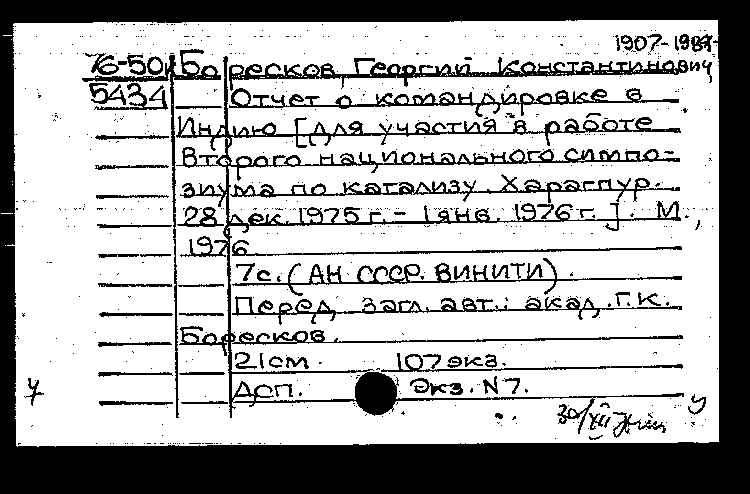 1907-1984
76-50 Боресков, Георгий Константинович,
5434 Отчет о командировке в
Индию [для участия в работе
Второго национального симпо-
зиума по катализу. Харагпур.
28 дек. 1975 г. - 1 янв. 1976 г.]. М.,
1976
7с. (АН СССР. ВИНИТИ).
Перед загл. авт.: акад. Г.К.
Боресков.
21см. 107 экз.
Дсп. Экз. N 7.
30/XII
у